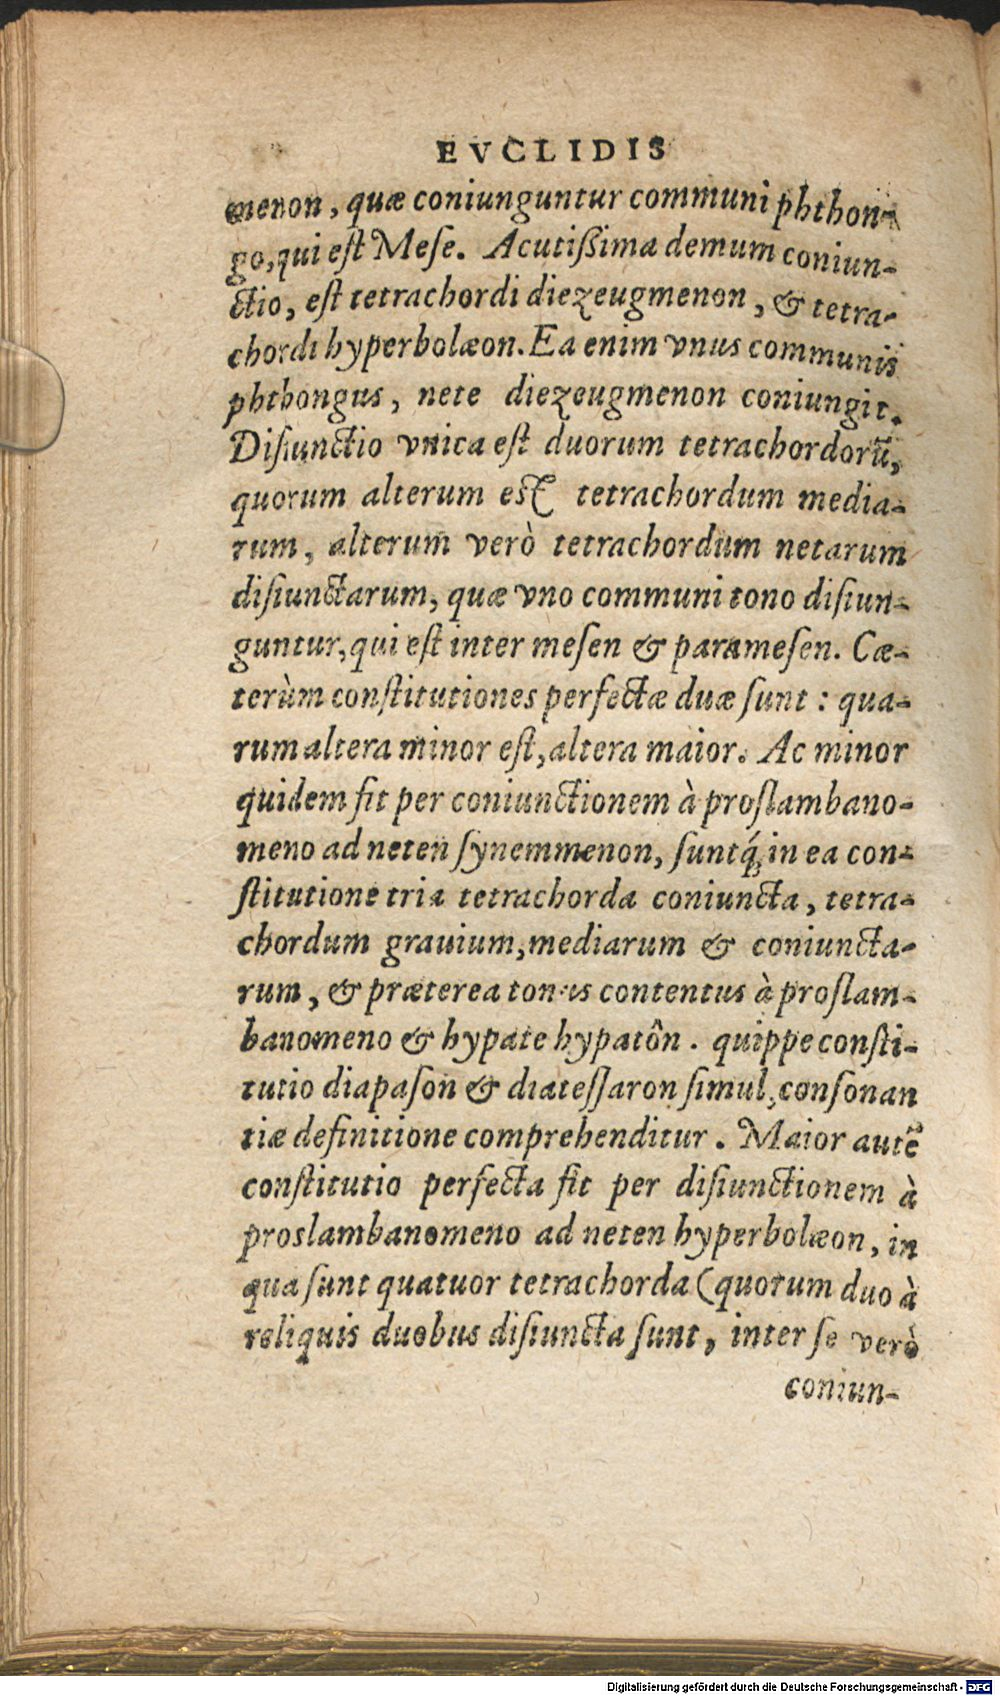 EVCLIDIS
menon, quæ coniunguntur communi phthon-
go, qui est Mese. Acutißima demum coniun-
ctio, est tetrachordi diezeugmenon, & tetra-
chordi hyperbolæon. Ea enim vnus communis
phthongus, nete diezeugmenon coniungit.
Disiunctio vnica est duorum tetrachordorū,
quorum alterum est tetrachordum media-
rum, alterum verò tetrachordum netarum
disiunctarum, quæ vno communi tono disiun-
guntur, qui est inter mesen & paramesen. Cæ-
terùm constitutiones perfectæ duæ sunt : qua-
rum altera minor est, altera maior. Ac minor
quidem fit per coniunctionem à proslambano-
meno ad neten synemmenon, suntq́; in ea con-
stitutione tria tetrachorda coniuncta, tetra-
chordum grauium, mediarum & coniuncta-
rum, & præterea tonus contentus à proslam-
banomeno & hypate hypatôn. quippe consti-
tutio diapason & diatessaron simul, consonan
tiæ definitione comprehenditur. Maior autē
constitutio perfecta fit per disiunctionem à
proslambanomeno ad neten hyperbolæon, in
qua sunt quatuor tetrachorda (quorum duo à
reliquis duobus disiuncta sunt, inter se verò
coniun-
Digitalisierung gefördert durch die Deutsche Forschungsgemeinschaft - DFG